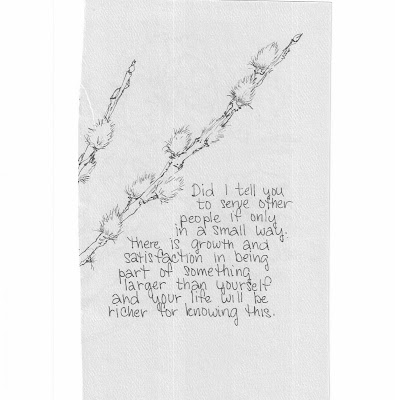 Did I tell you
to serve other
people if only
in a small way.
There is growth and
satisfaction in being
part of something
larger than yourself
and your life will be
richer for knowing this.